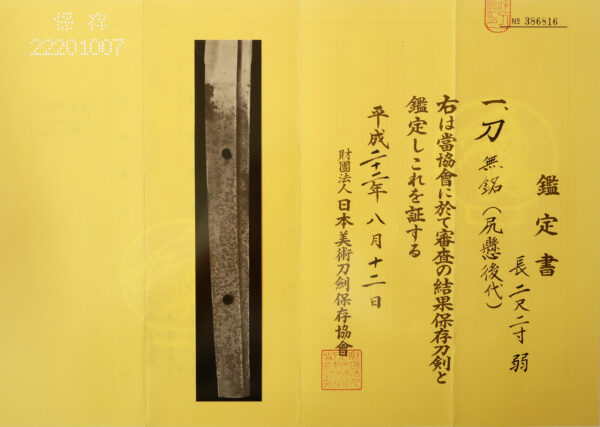 鑑定書
一、刀 無銘(尻懸後代)
長二尺二寸弱
右は當協會に於て審査の結果保存刀剣と
鑑定しこれを証する
平成二十二年八月十二日
財團法人日本美術刀劍保存協會
№ 386816
保存
22201007